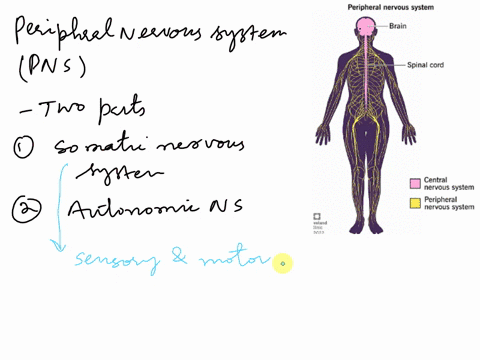 Peripheral Nervous system
(PNS)
- Two parts
① Somatic nervous
system
② Autonomic NS
sensory & motor
Peripheral nervous system
Brain
Spinal cord
Central
nervous system
Peripheral
nervous system